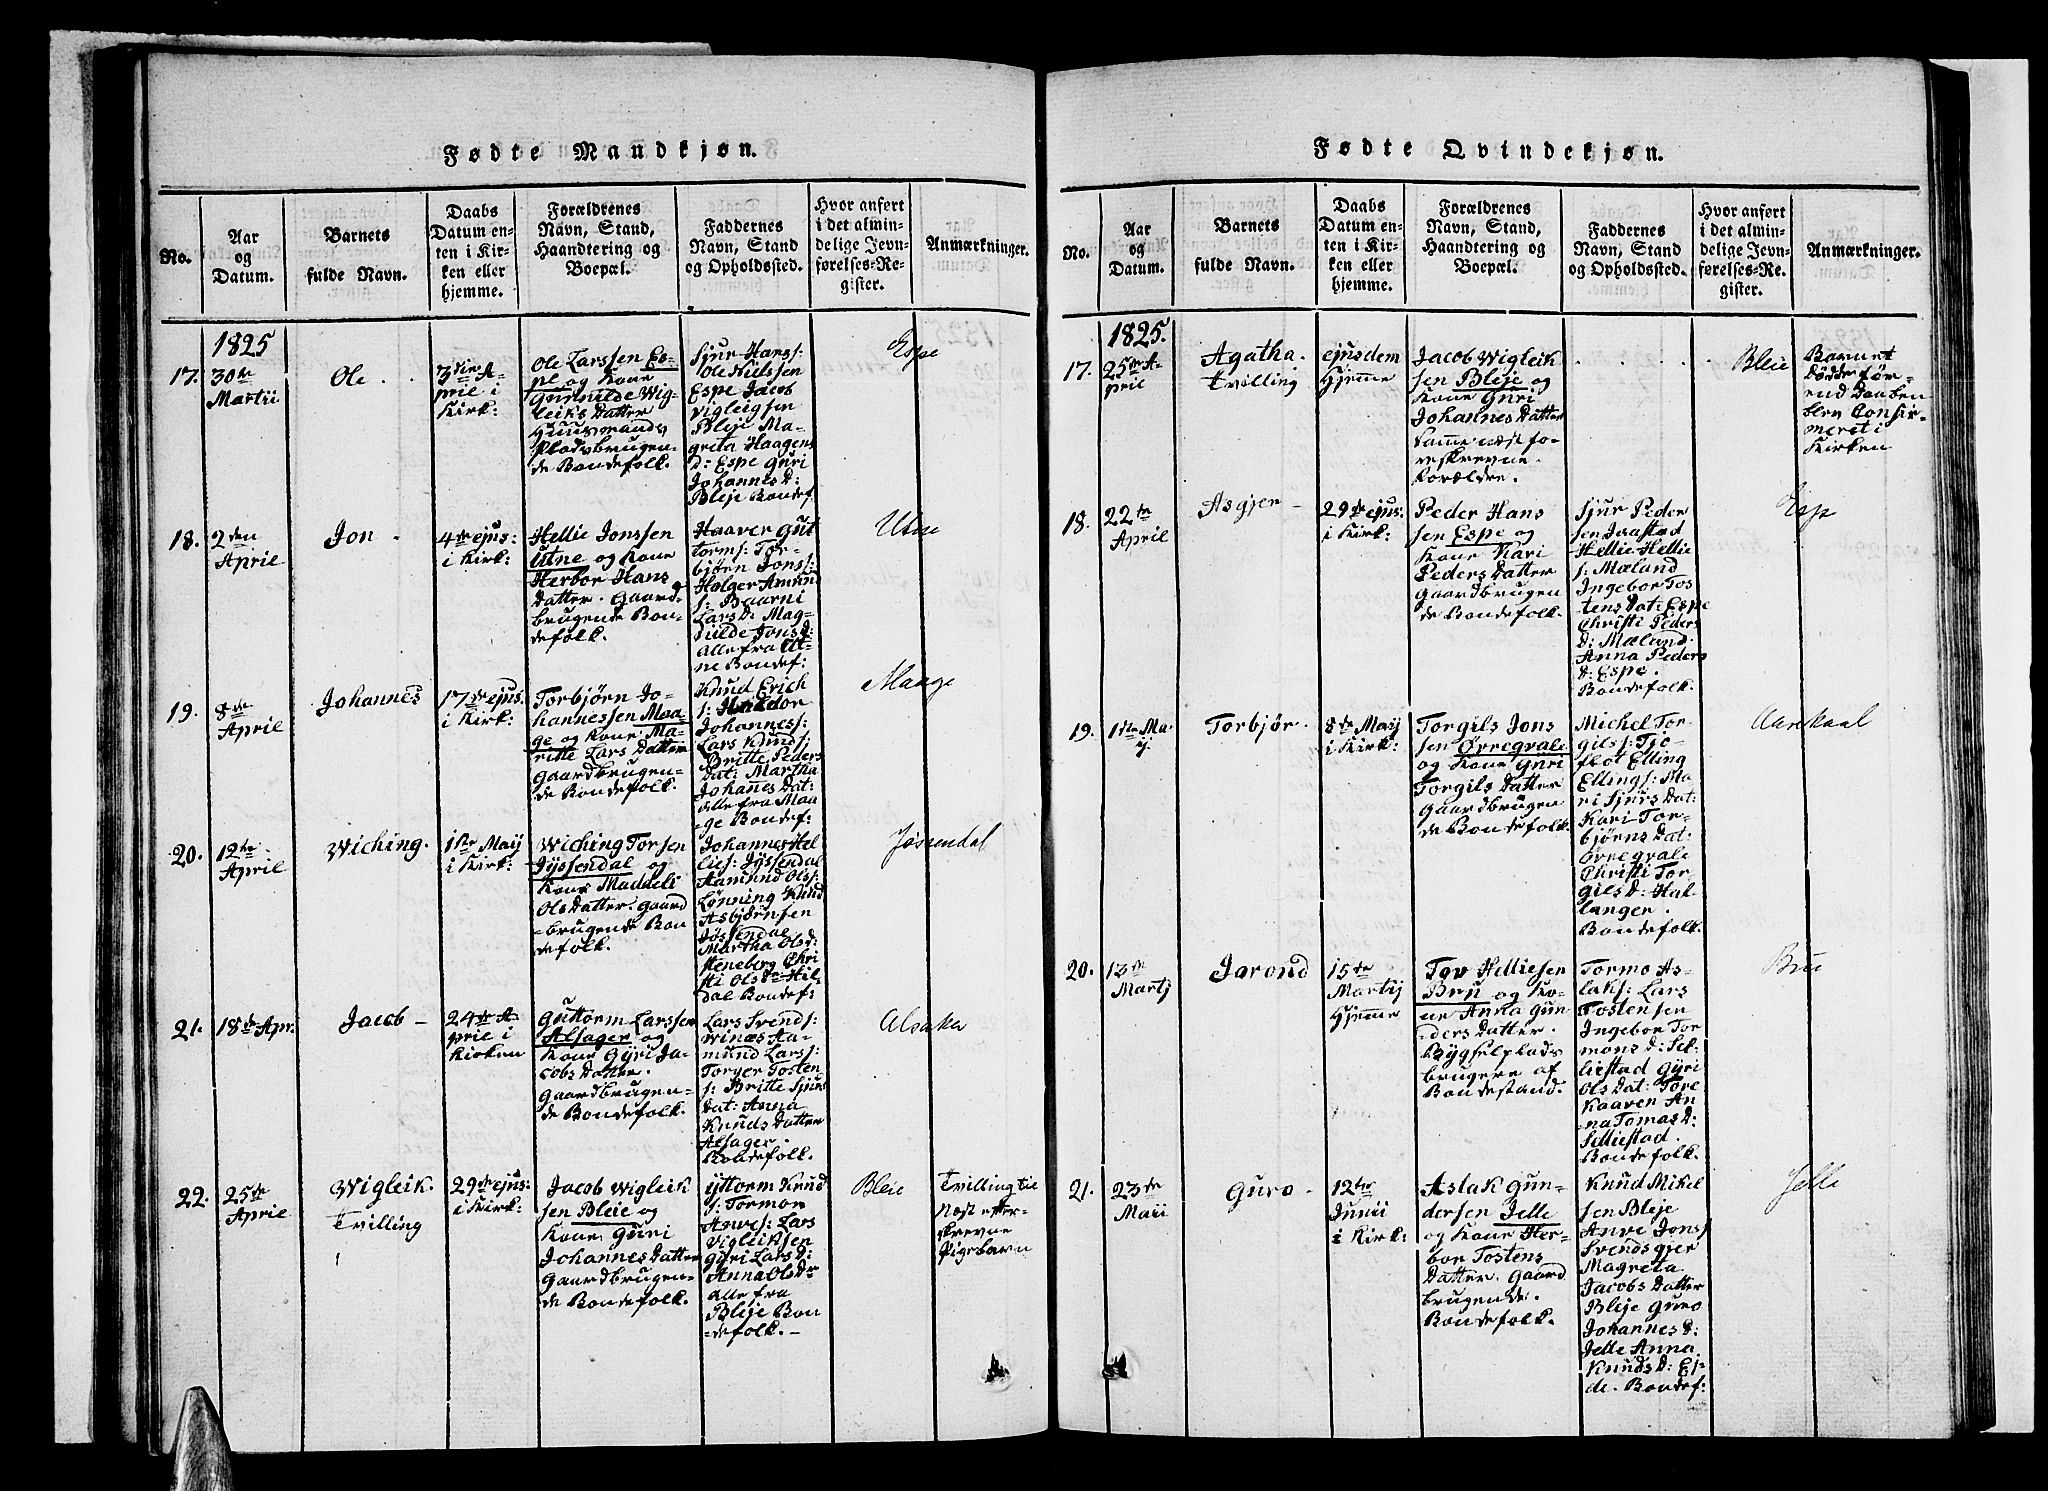 Fødte Mandkjøn.
No.
Aar
og
Datum.
Barnets
fulde Navn.
Daabs
Datum en-
ten i Kir-
ken eller
hjemme.
Forældrenes
Navn, Stand,
Haandtering og
Boepæl.
Faddernes
Navn, Stand
og Opholdssted.
Hvor anført
i det almin-
delige Jevn-
førelses-Re-
gister.
Anmærkninger.
1825
17.
30te
Martii
Ole.
3die A-
pril i
Kirk:
Ole Larssen Es-
pe og Kone
Gunnilde Wig-
leiks Datter
Huusmands
Pladsbrugen-
de Bondefolk.
Sjur Hans s:
Ole Nielssen
Espe Jacob
Vigleigsen
Bleje Ma-
greta Haagens
D: Espe Guri
Johannes D:
Bleje Bondef
Espe
18.
2den
April
Jon
4de ejus:
i Kirk:
Hellie Jonssen
Utne og Kone
Herbor Hans
Datter. Gaard-
brugende Bon-
defolk.
Haaver Gut
torms: Tor-
bjørn Jonss:
Holger Amun
s: Baarni
Lars D: Mag-
nilde Jons D:
alle fra Ut-
ne Bondef:
Utne
19.
8de
April
Johannes
17de ejus:
i Kirk:
Torbjørn Jo-
hannessen Maa-
ge og Kone Ma-
ritte Lars Datter
Gaardbrugen-
de Bondefolk.
Knud Erich
s: Haldor
Johannes s:
Lars Knuds s:
Britte Peders
Dat: Martha
Johanes Dat:
alle fra Maa-
ge Bondef:
Maage
20.
12te
April
Wiching.
1ste Maij
i Kirk:
Wiching Torsen
Jyssendal og
Kone Maddeli
Ols Datter. Gaard
-brugende Bon
defolk.
Johannes Hel
lies: Jyssendal
Aamund Ols s:
Lønning Knud
Asbjørnsen
Jøssendal
Martha Ols d:
Steneberg Chri
sti Ols Dr Hil
dal Bondef:
Jøssendal
21.
18de Apr.
Jacob
24de A-
pril i
Kirken
Guttorm Larssen
Alsager og
Kone Gyri Ja-
cobs Datter.
Gaardbrugen-
de Bondefolk.
Lars Svends:
Winæs Aa-
mund Lars s:
Torger Tosten
s: Britte Sjurs
Dat: Anna
Knuds Datter
Alsager.
Bondefolk.
Alsaker
22.
25de
April
Wigleik.
Tvilling
29de ejus:
i Kirk:
Jacob Wigleik
sen Bleie og
Kone Guri
Johannes Datter
Gaardbrugen-
de Bondefolk.
Guttorm Knud
s: Tormon
Anves: Lars
Vigleiksen
Gyri Lars D:
Anna Ols Dr
alle fra
Bleje Bon
-defolk.
Bleie
Tvilling til
Næst efter-
skrevne
Pigebarn
Fødte Qvindekjøn.
No.
Aar
og
Datum.
Barnets
fulde Navn.
Daabs
Datum en-
ten i Kir-
ken eller
hjemme.
Forældrenes
Navn, Stand,
Haandtering og
Boepæl.
Faddernes
Navn, Stand
og Opholdssted.
Hvor anført
i det almin-
delige Jevn-
førelses-Re-
gister.
Anmærkninger.
1825.
17.
25de A-
pril
Agatha.
Tvilling
ejusdem
Hjemme
Jacob Wigleik
sen Bleje og
Kone Guri
Johannes Datter
samme næst fo-
reskrevne
Forældre.
Bleie
Barnet
døde før-
end Daaben
blev Confir-
meret i
Kirken
18.
22de
April
Asgjer
29de ejus:
i Kirk:
Peder Hans
sen Espe og
Kone Kari
Peders Datter
Gaardbrugen
de Bondefolk.
Sjur Peder
sen Jaastad
Hellie Hellie
s: Mæland
Ingebor Tos
tens Dat: Espe
Christi Peders
D: Mæland
Anna Peders
D: Espe.
Bondefolk.
Espe
19.
1ste Ma-
ij
Torbjør.
8de Maij
i Kirk:
Torgils Jons
sen Ørregvale
og Kone Guri
Torgils Datter
Gaardbrugen
de Bondefolk.
Michel Tor-
gils s: Tjo-
flot Elling
Ellings: Ma
ri Sjurs Dat:
Kari Tor-
bjørns Dat:
Ørregvale
Christi Tor-
gils D: Hal-
langer.
Bondefolk.
Aarekaal
20.
13de
Martj
Jorond
15de
Martij
Hjemme
Tov Helliesen
Bru og Ko-
ne Anna Gun
ders Datter.
Bygselplads
brugere af
Bondestand.
Tormo As-
laks: Lars
Tostensen
Ingebor Tor
mons D: Sel-
liestad Gyri
Ols Dat: Tore
Kaaven An
na Tomas D:
Selliestad.
Bondefolk.
Bru
21.
23de
Maii
Guro
12te
Junii
i Kirk:
Aslak Gun-
dersen Jelle
og Kone Her-
bor Tostens
Datter. Gaard
brugende.
Bondefolk.
Knud Mikel
sen Bleje
Anve Jons s
Svendsgjer
Magreta
Jacobs Datter
Bleje Guro
Johannes D:
Jelle Anna
Knuds D: Ej-
de. Bondef:
Jelle